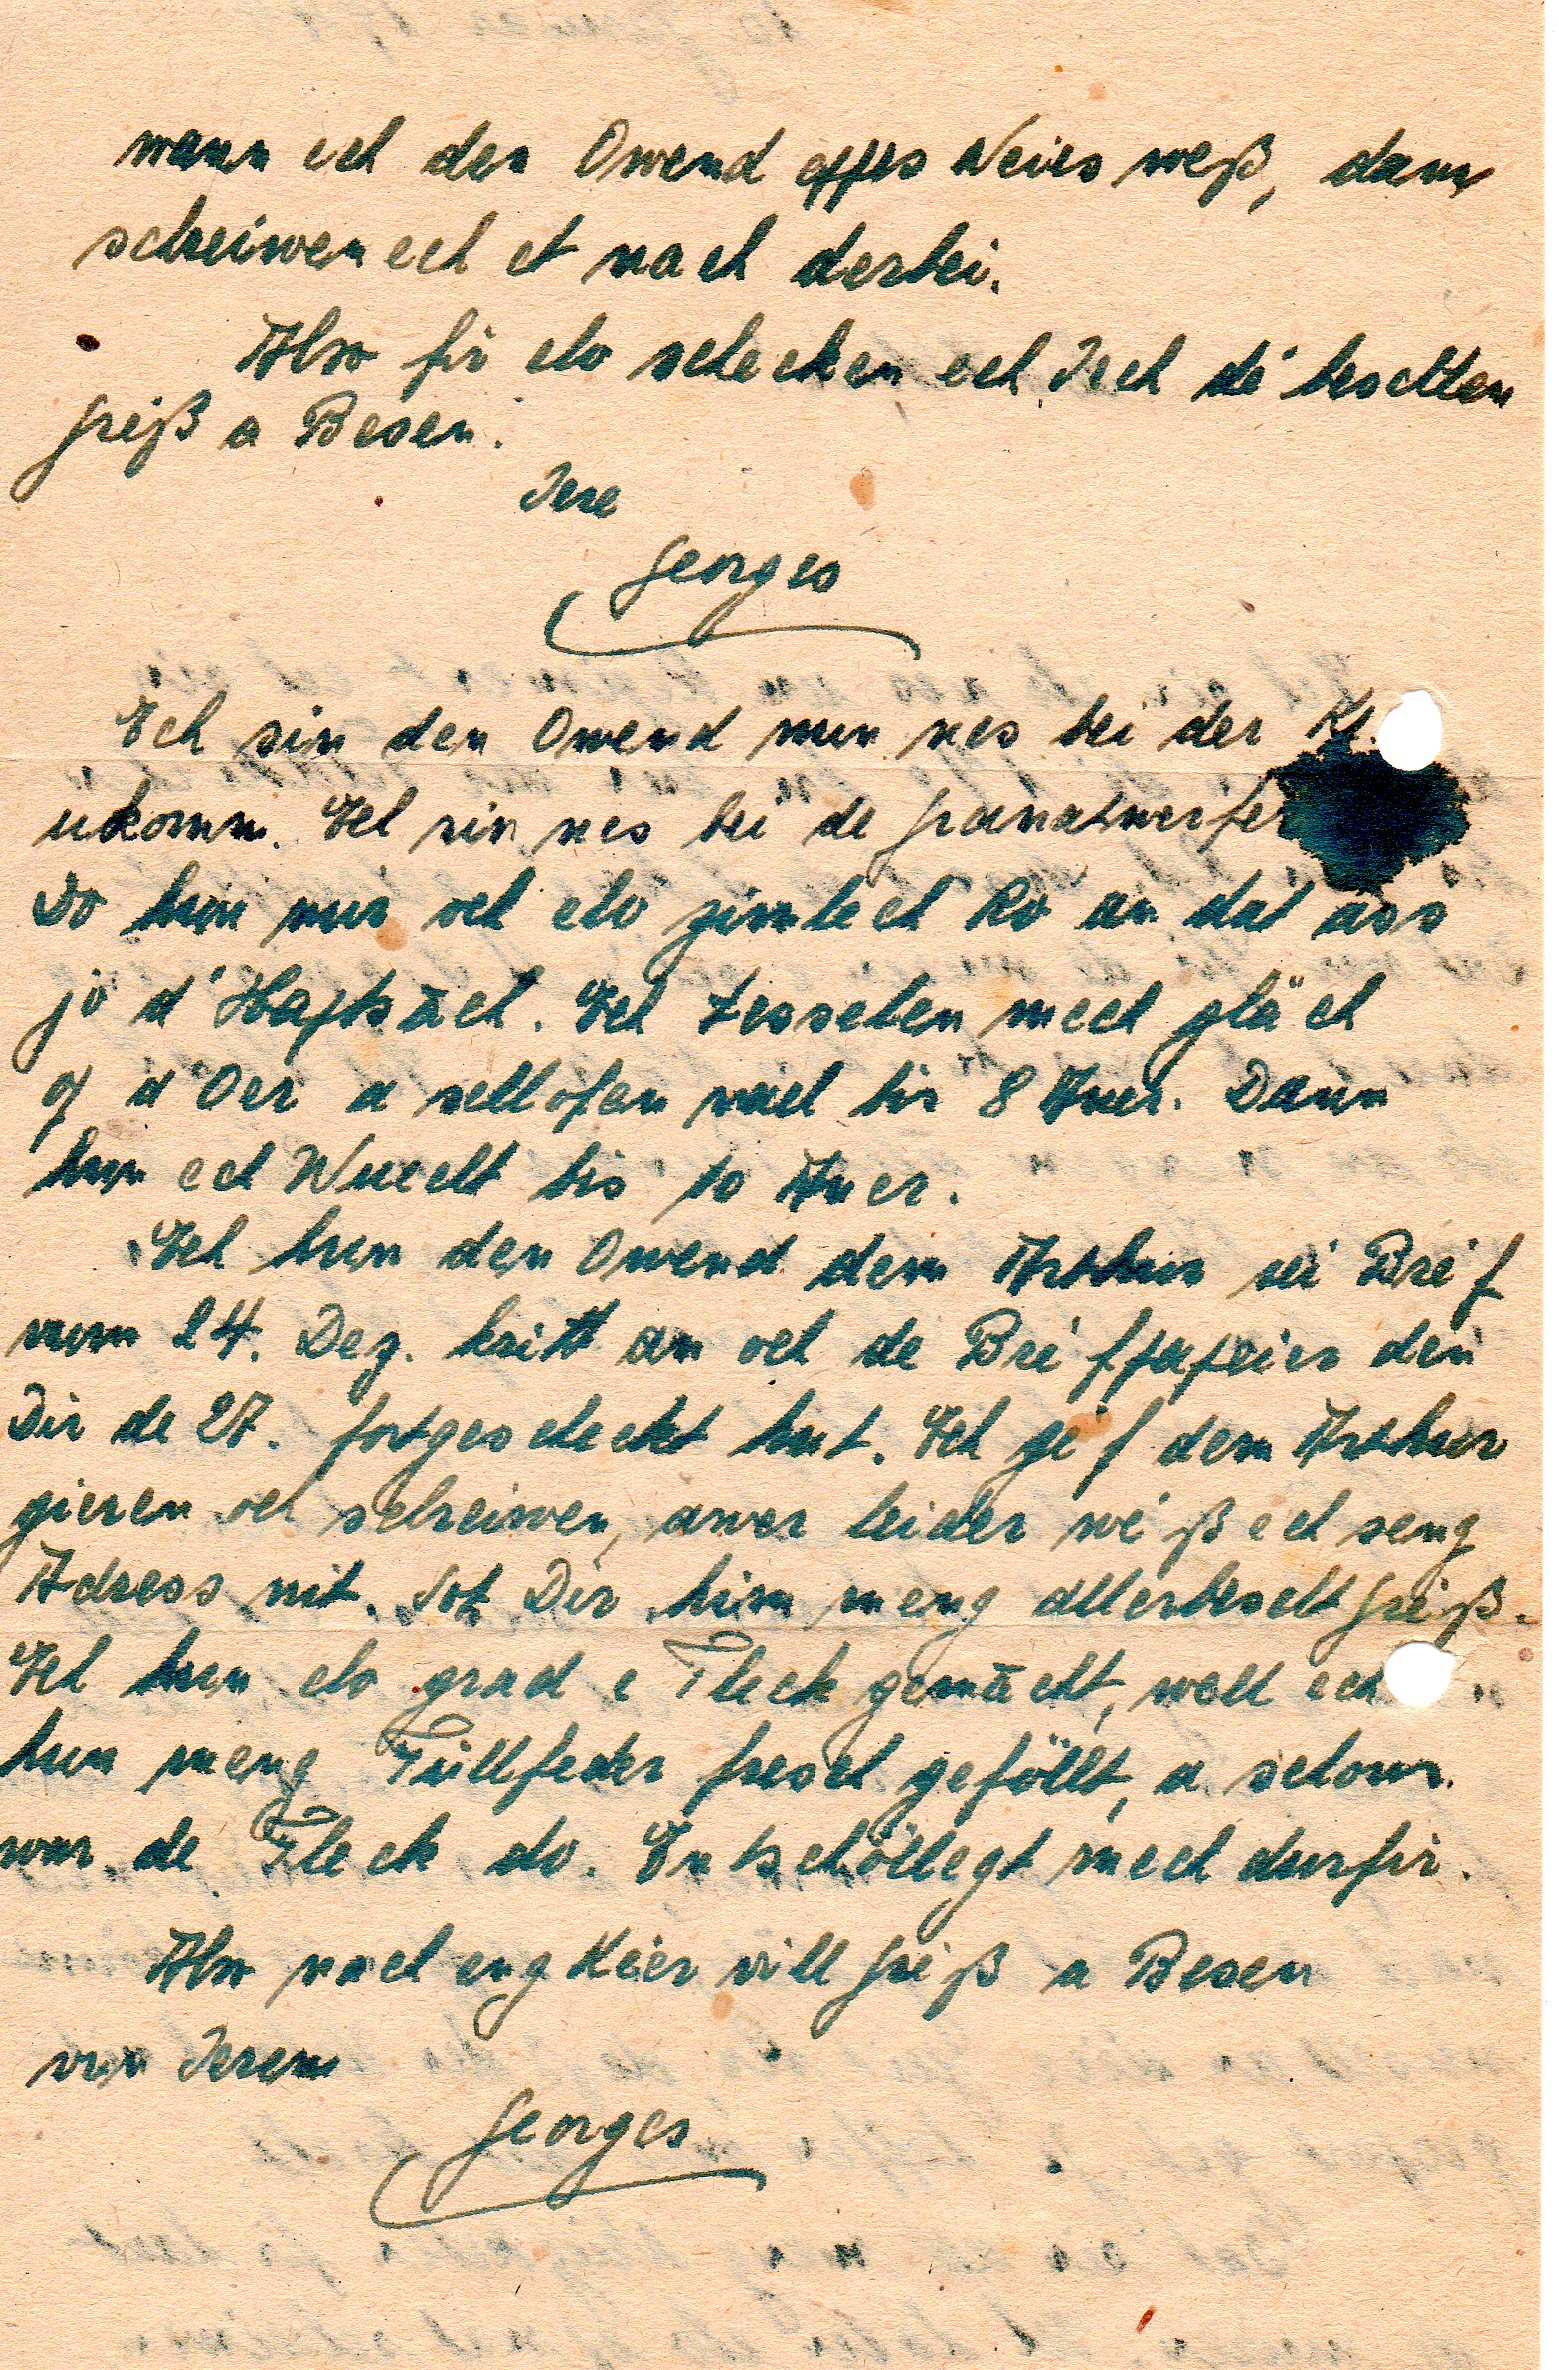 wann ech den Owend eppes Neies weß, dann
schreiwen ech et nach derbei.
Also fir elo schecken ech Iech dé beschten
Greiß a Besen.
Iere
Georges
Ech sin den Owend nun nes bei der K
ukomm. Ech sin nes bei de Granatwerfer
Do hun mir och elo zimlech Ro an dat ass
jo d'Haptsäch. Ech
op d'Oer a schlofen mol bis 8 Auer. Dann
hun ech Wuecht bis 10 Auer.
Ech hun den Owend dem Arthur sei Bréf
vum 24. Dez. kritt an och de Bréfpapeier den
Dir de 27. fortgescheckt hut. Ech géf dem Arthur
gieren och schreiwen, awer leider wéß ech seng
Adress nit. Sot Dir him meng allerbescht Greiß.
Ech hun elo grad e Fleck gemächt, well ech
hun meng Füllfeder fresch geföllt, a schonn
war de Fleck do. Entschöllegt mech durfir.
Also nach eng Kéier vill Greiß a Besen
vun Ierem
Georges